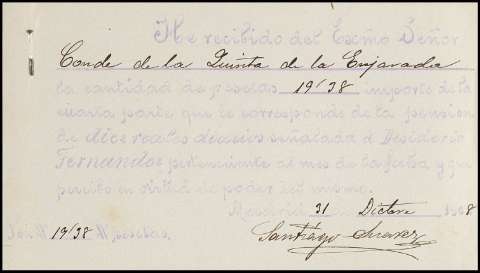 He recibido del Excmo Señor
Conde de la Quinta de la Enjarada
la cantidad de pesetas 19'38 importe de la
cuarta parte que le corresponde de la pension
de diez reales diarios señalada á Desiderio
Fernandez perteneciente al mes de la fecha, y que
percibo en virtud de poder del mismo.
31 Dictere 8
Son 19'38 pesetas.
Santiago Suarez